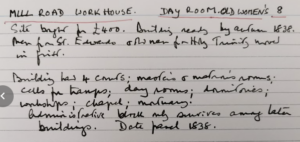 MILL ROAD WORKHOUSE. DAY ROOM. OLD WOMEN'S 8
Site bought for £400. Building ready by autumn 1838.
Men from St. Edwards & Women from Holy Trinity moved
in first.
Building had 4 courts; master's & matron's rooms;
cells for tramps; day rooms; dormitories;
workshops; chapel; mortuary.
Administrative block only survives among later
buildings. Date panel 1838.